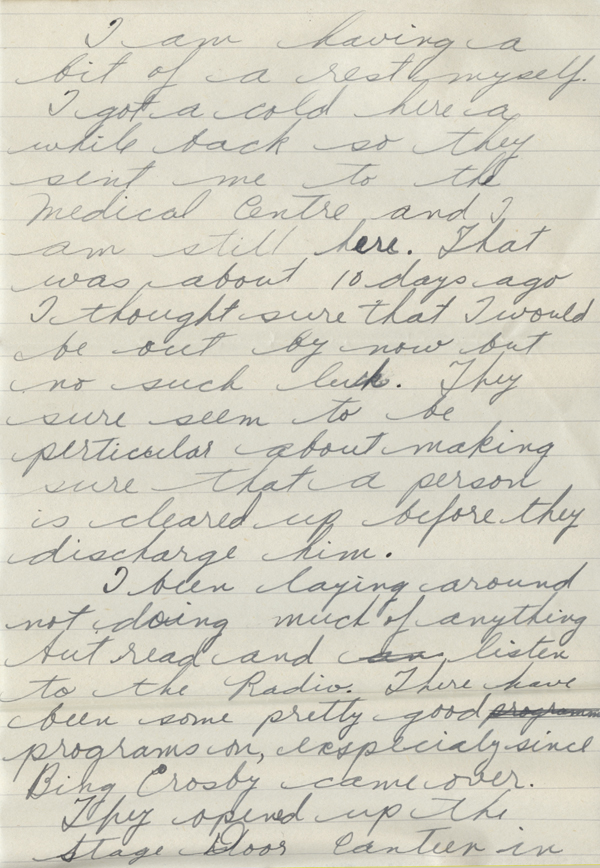 I am having a
bit of a rest myself.
I got a cold here a
while back so they
sent me to the
Medical Centre and I
am still here. That
was about 10 days ago
I thought sure that I would
be out by now but
no such luck. They
sure seem to be
perticular about making
sure that a person
is cleared up before they
discharge him.
I been laying around
not doing much of anything
but read and an listen
to the Radio. There have
been some pretty good programm
programs on, exspecialy since
Bing Crosby came over.
They opened up the
Stage Door Canteen in